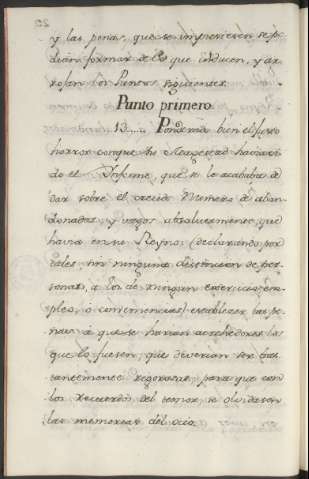 y las penas, que se impusieren se po-
dian formar de lo que inducen, y ar-
rojan los Puntos siguientes.
Punto primero.
13..... Ponderado bien el justo
horror con que su Magestad havia oi-
do el Informe, que se le acababa de
dar sobre el crecido Numero de aban-
donados, y vagos absolutamente que
havia en su Reyno, (declarando por
tales, sin ninguna distincion de per-
sonas, a los de ningun exercicio, em-
pleo, o conveniencias) establecer las pe-
nas a que se harian acrehedores los
que lo fuesen, que deverian ser bas-
tantemente rigorosas, para que con
los recuerdos del temor se olvidaron
las memorias del ocio.